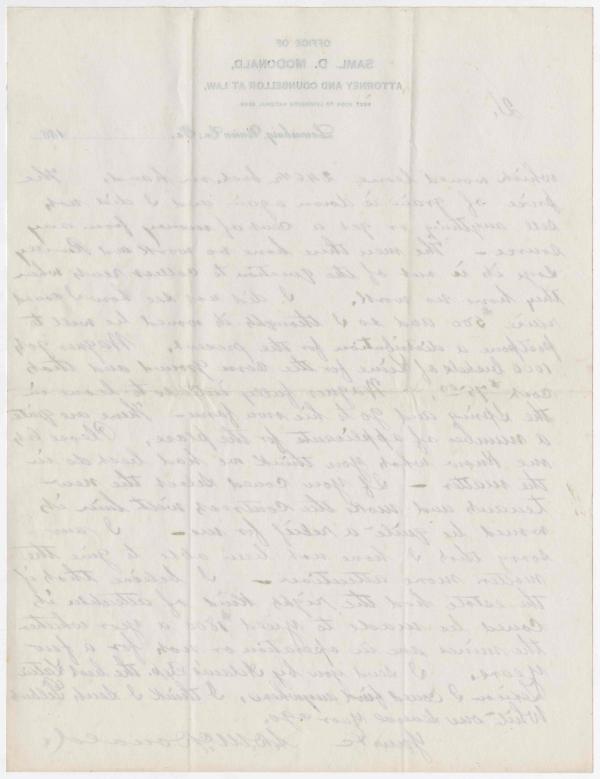 OFFICE OF
SAML. D. MCDONALD,
ATTORNEY AND COUNSELLOR AT LAW,
NEXT DOOR TO LEWISBURG NATIONAL BANK
2/,
Lewisburg, Union Co., Pa., 188
which would leave bal. on hand. The
price of grain is down again and I did not
sell anything or get a cent of money from any
source - The men there have no work and
says it is out of the question to collect rents when
they have no work. I did not see how I could
raise $500 and so I thought it would be well to
postpone a distribution for the present. Wagner got
1000 bushels of lime for the ground and that
cost $75.00. Wagner fully intends to leave in
the spring and go to his own farm - There are quite
a number of applicants for the place. Please let
me know what you think we had best do in
the matter - If you could select the new
tenant and make the contract with him it
would be quite a relief for me - I am
sorry that I have not been able to give the
matter more attention - I believe that if
the estate had the right kind of attention it
could be made to yield a year whether
the mines are in operation or not, for a few
years. I send you by Adams Exp. the best
I could find anywhere, I think I sent
year ago.
Yours &c
S. D. McDonald.